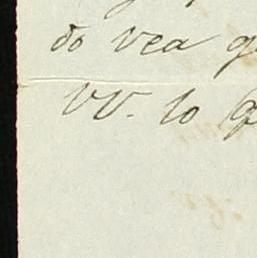 do vea
VV. lo